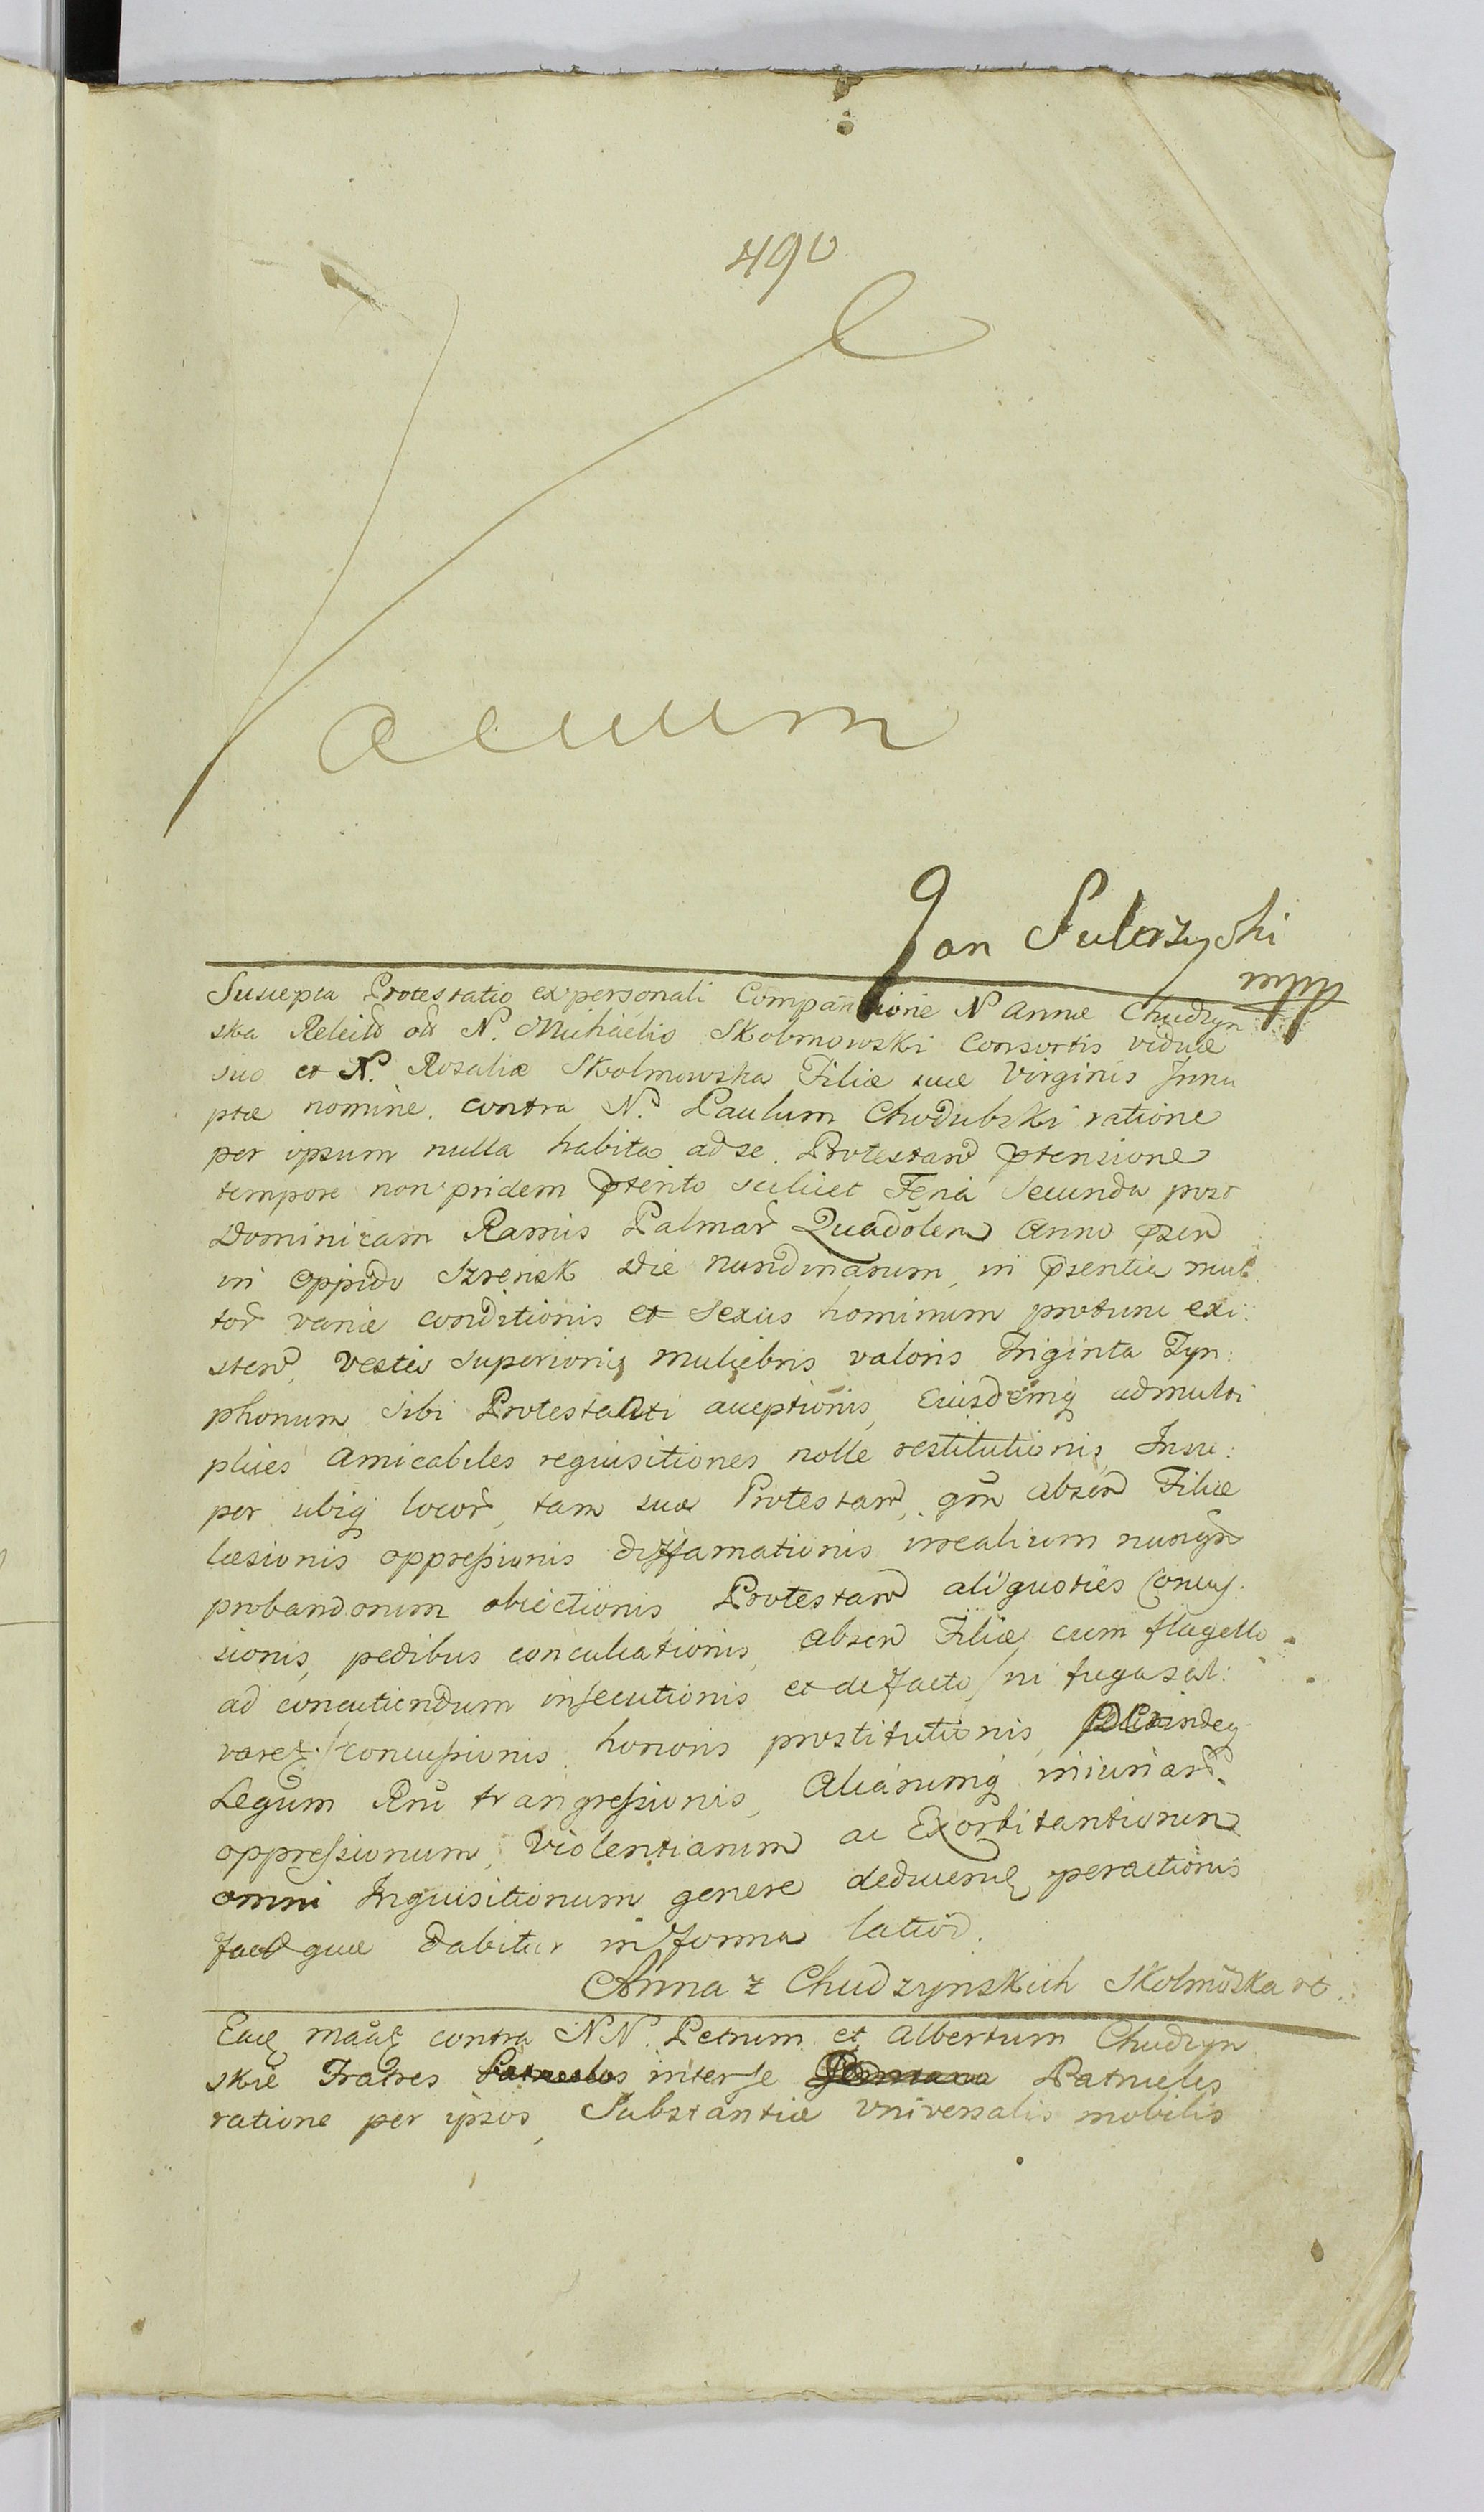 490
Vacuum
Jan Sulerzyski
mpp
Suscepta Protestatio ex personali Compantione N Annæ Chudzyn
ska Relict̃ oĩ N. Michaelis Skolmowski Consortis viduæ
suo et N. Rosaliæ Skolmowska Filiæ suæ Virginis Innu
ptæ nomine. contra N. Paulum Chodubski ratione
per ipsum nulla habita ad se Protestand ptensione
tempore non pridem pterito scilicet Feria Secunda post
Dominicam Ramis Palmar Quadolen Anno psen
in Oppido Szrensk die nundinarum, in psentia mul
tor variæ conditionis et Sexus hominum protunc exi:
sten, Vestis Superioris muliebris valoris Triginta Tyn:
phonum sibi Protestanti acceptionis, Eiusdemq admulti
plices amicabiles requisitiones nolle restitutionis, Insu:
per ubiq locor, tam suæ Protestan, qm absen Filiæ
læsionis oppressionis diffamationis irrealium nunqm
probandorum obiectionis, Protestan aliquoties Concus:
sionis, pedibus conculcationis, absen Filiæ cum flagello
ad concutiendum insecutionis et defacto /ni fuga sal:
varet:/ concussionis, honoris prostitutionis, Proindeq
Legum Rni trangressionis, Aliarumq iniuriar.
oppressionum, Violentiarum ac Exorbitantiarum
omni Inquisitionum genere deducent peractionis
fact quæ dabitur in forma latior.
Anna z Chudzynskich Skolmoska rc.
Eadẽ contra NN. Petrum et Albertum Chudzyn
skie Fratres Patrueles inter se Patrueles
ratione per ipsos, Substantiæ universalis mobilis